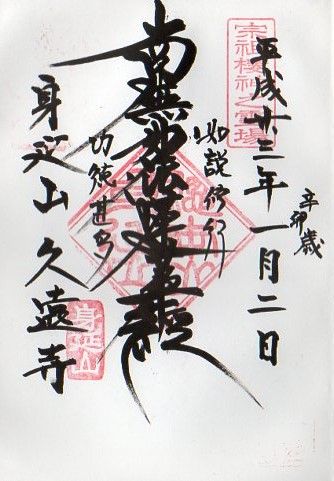 宗祖棲神之霊場
平成廾三年一月二日
辛卯歳
如説修行
南無妙法蓮華経
功徳甚多
身延山久遠寺
身延山